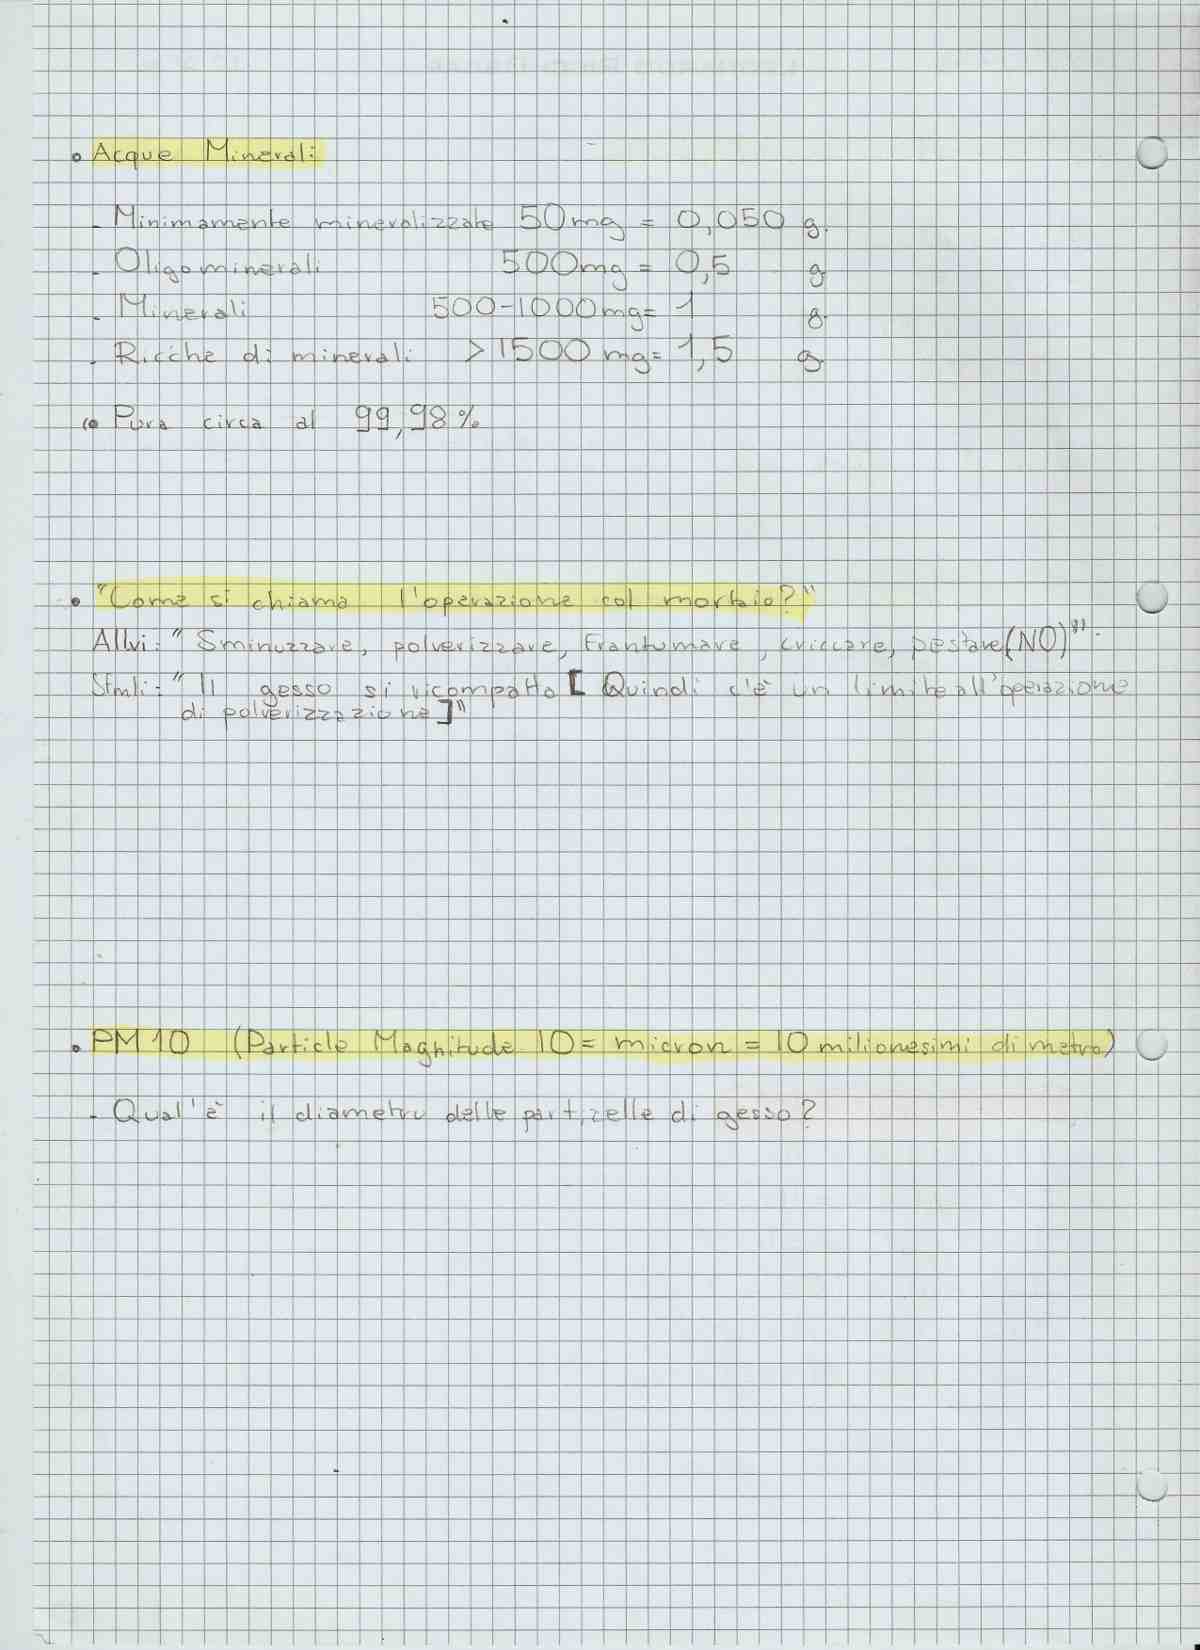 • Acque Minerali:
- Minimamente mineralizzate 50mg = 0,050 g.
- Oligominerali 500mg = 0,5 g
- Minerali 500-1000mg= 1 g.
- Ricche di minerali > 1500 mg= 1,5 g
• Pura circa al 99,98%
• "Come si chiama l'operazione col mortaio?"
Allvi: "Sminuzzare, polverizzare, frantumare, criccare, pestare(NO)".
Stmli: "Il gesso si ricompatta [Quindi c'è un limite all'operazione
di polverizzazione]"
• PM10 (Particle Magnitude 10= micron = 10 milionesimi di metro)
- Qual'è il diametro delle particelle di gesso?